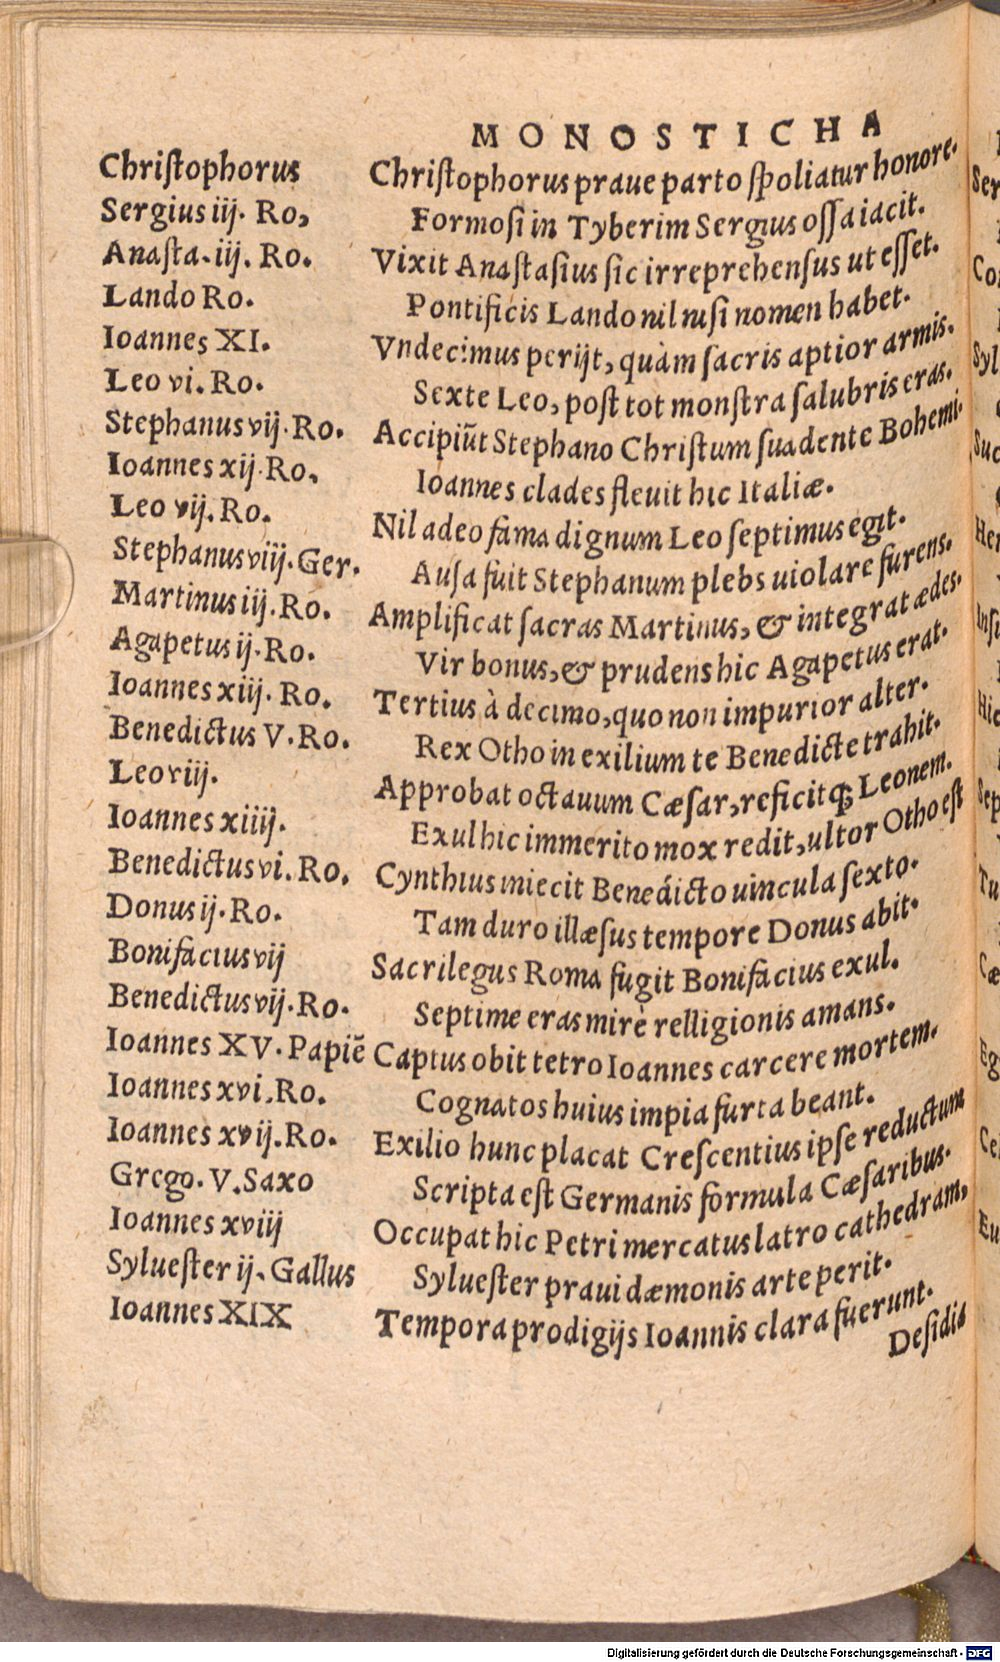 MONOSTICHA
Chriſtophorus Chriſtophorus praue parto ſpoliatur honore.
Sergius iij. Ro, Formoſi in Tyberim Sergius oſſa iacit.
Anaſta. iij. Ro. Vixit Anaſtaſius ſic irreprehenſus ut eſſet.
Lando Ro. Pontificis Lando nil niſi nomen habet.
Ioannes XI. Vndecimus perijt, quàm ſacris aptior armis.
Leo vi. Ro. Sexte Leo, poſt tot monſtra ſalubris eras.
Stephanus vij. Ro. Accipiūt Stephano Chriſtum ſuadente Bohemi.
Ioannes xij. Ro, Ioannes clades fleuit hic Italiæ.
Leo vij. Ro. Nil adeo fama dignum Leo ſeptimus egit.
Stephanus viij. Ger. Auſa fuit Stephanum plebs uiolare furens.
Martinus iij. Ro. Amplificat ſacras Martinus, & integrat ædes.
Agapetus ij. Ro. Vir bonus, & prudens hic Agapetus erat.
Ioannes xiij. Ro. Tertius à decimo, quo non impurior alter.
Benedictus V. Ro. Rex Otho in exilium te Benedicte trahit.
Leo viij. Approbat octauum Cæſar, reficitq; Leonem.
Ioannes xiiij. Exul hic immerito mox redit, ultor Otho eſt
Benedictus vi. Ro. Cynthius iniecit Benedicto uincula ſexto.
Donus ij. Ro. Tam duro illæſus tempore Donus abit.
Bonifacius vij Sacrilegus Roma fugit Bonifacius exul.
Benedictus vij. Ro. Septime eras mirè relligionis amans.
Ioannes XV. Papiē Captus obit tetro Ioannes carcere mortem.
Ioannes xvi. Ro. Cognatos huius impia furta beant.
Ioannes xvij. Ro. Exilio hunc placat Creſcentius ipſe reductum
Grego. V. Saxo Scripta eſt Germanis formula Cæſaribus.
Ioannes xviij Occupat hic Petri mercatus latro cathedram,
Sylueſter ij. Gallus Sylueſter praui dæmonis arte perit.
Ioannes XIX Tempora prodigijs Ioannis clara fuerunt.
Deſidia
Digitalisierung gefördert durch die Deutsche Forschungsgemeinschaft - DFG